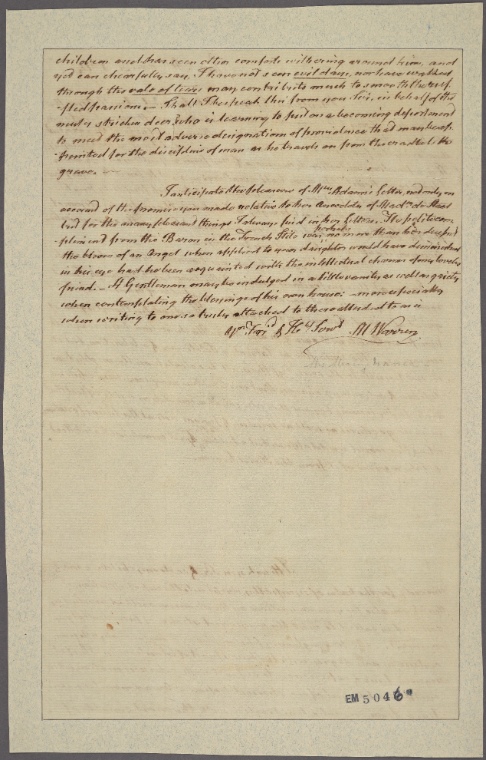 children and has seen other comforts withering around him, and
yet can chearfully say, I have not seen evil days, nor have walked
through the vale of tears may contribute much to smooth the ruf-
fled passions. Shall I bespeak this from you Sir, in behalf of the
under stricken deer, who is learning to put on a becoming deportment
to meet the most adverse designations of providence that may be ap-
pointed for the discipline of man as he travels on from the cradle to the
grave. —
I anticipated the pleasure of Mrs Adams's Letter, not only on
account of the promise you made relative to her Anecdote of
but for the many pleasant things I always find in her Letters. The polite com-
pliment from the Baron in the French Stile was probably no more than he
the of an Angel when applied to your daughter would have diminished
in his eye had he been acquainted with the intellectual charms of my lovely
friend. — A Gentleman may be indulged in a little vanity as well as gaiety
when contemplating the blessings of his own house: more especially
when writing to one so truly attached to there as
Yr Frd & Hble Servt M Warren
EM 5046